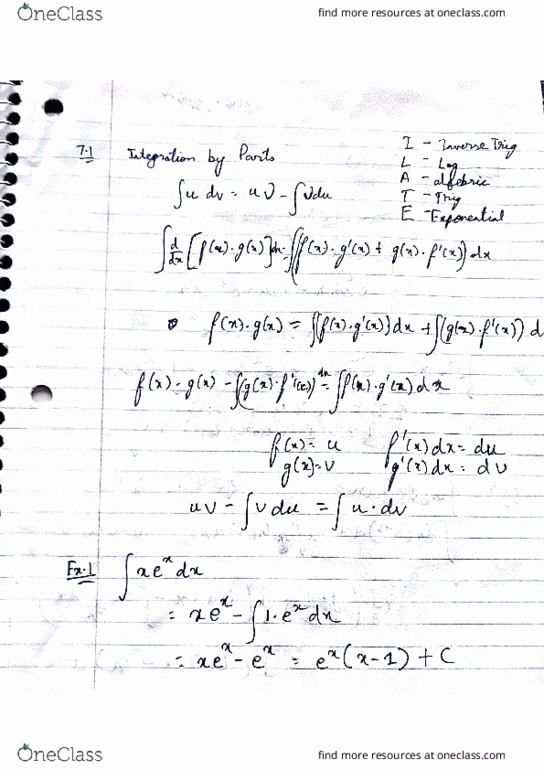 OneClass
find more resources at oneclass.com
7.1 Integration by Parts
I - Inverse Trig
L - Log
A - algebric
T - Trig
E - Exponential
∫u dv = uv - ∫vdu
∫ d/dx [f(x)·g(x)]dx = ∫(f(x)·g'(x) + g(x)·f'(x))dx
f(x)·g(x) = ∫(f(x)·g'(x))dx + ∫(g(x)·f'(x)) d
f(x)·g(x) - ∫(g(x)·f'(x)) dx = ∫f(x)·g'(x)dx
f(x) = u f'(x)dx = du
g(x) = v g'(x)dx = dv
uv - ∫vdu = ∫u·dv
Ex.1 ∫xe^x dx
= xe^x - ∫1·e^x dx
= xe^x - e^x = e^x(x-1) + C
OneClass
find more resources at oneclass.com